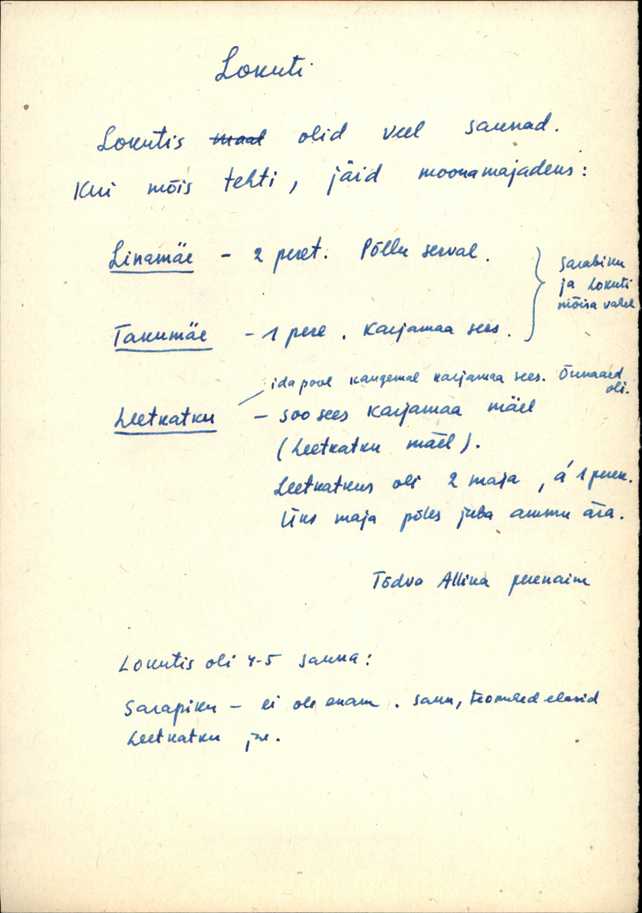 Lokuti
Lokutis maad olid veel saunad.
Kui mõis tehti, jäid moonamajadeks:
Linamäe - 2 peret. Põllu serval.
Sarabiku
ja Lokuti
mõisa vahel
Takumäe - 1 pere. Karjamaa sees.
ida pool kaugemal karjamaa sees. Õunaaed
oli.
Leetkatku - soo sees karjamaa mäel
(Leetkatku mäel).
Leetkatkus oli 2 maja, á 1 perek.
Üks maja põles juba ammu ära.
Tõdva Allika perenaine
Lokutis oli 4-5 sauna:
Sarapiku - ei ole enam. Saun, teomehed elasid
Leetkatku jne.